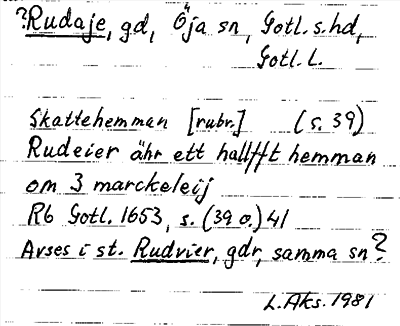 ?Rudaje, gd, Öja sn, Gotl. s. hd,
Gotl. L.
Skattehemman [rubr.] (s. 39)
Rudeier ähr ett hallfft hemman
om 3 marckeleij
Rb Gotl. 1653, s. (39 o.) 41
Avses i st. Rudvier, gdr, samma sn?
L. Aks. 1981